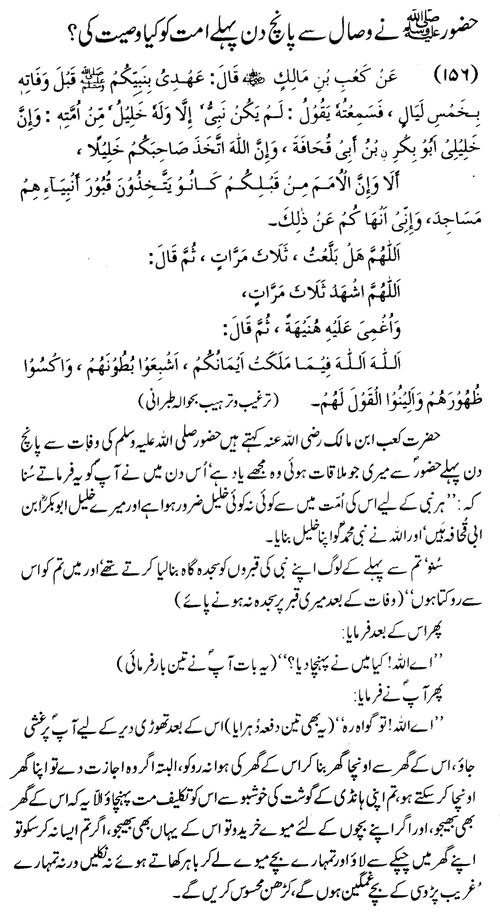 حضور ﷺ نے وصال سے پانچ دن پہلے امت کو کیا وصیت کی؟
(۱۵۶) عَنْ كَعْبِ بْنِ مَالِكٍ ؓ قَالَ: عَهْدِىْ بِنَبِيِّكُمْ ﷺ قَبْلَ وَفَاتِهٖ
بِخَمْسِ لَيَالٍ ، فَسَمِعْتُهٗ يَقُوْلُ : لَمْ يَكُنْ نَبِىٌّ اِلَّا وَلَهٗ خَلِيْلٌ مِّنْ اُمَّتِهٖ : وَاِنَّ
خَلِيْلِىْ اَبُوْ بَكْرِ ِنِ بْنُ اَبِىْ قُحَافَةَ ، وَاِنَّ اللّٰهَ اتَّخَذَ صَاحِبَكُمْ خَلِيْلًا ،
اَلَا وَاِنَّ الْاُمَمَ مِنْ قَبْلِكُمْ كَانُوْ يَتَّخِذُوْنَ قُبُوْرَ اَنْبِيَآءِ هِمْ
مَسَاجِدَ، وَاِنِّىْ اَنْهَا كُمْ عَنْ ذٰلِكَ۔
اَللّٰهُمَّ هَلْ بَلَّغْتُ ، ثَلَاثَ مَرَّاتٍ ، ثُمَّ قَالَ:
اَللّٰهُمَّ اشْهَدْ ثَلَاثَ مَرَّاتٍ،
وَاُغْمِىَ عَلَيْهِ هُنَيْهَةً ، ثُمَّ قَالَ:
اَللّٰهَ اَللّٰهَ فِيْمَا مَلَكَتْ اَيْمَانُكُمْ ، اَشْبِعُوْا بُطُوْنَهُمْ ، وَاكْسُوْا
ظُهُوْرَهُمْ وَاَلِيْنُوْا الْقَوْلَ لَهُمْ۔ (ترغیب وترہیب بحوالہ طبرانی)
حضرت کعب ابن مالک رضی اللہ عنہ کہتے ہیں حضور صلی اللہ علیہ وسلم کی وفات سے پانچ
دن پہلے حضورؐ سے میری جو ملاقات ہوئی وہ مجھے یاد ہے، اُس دن میں نے آپؐ کو یہ فرماتے سُنا
کہ: ’’ہر نبی کے لیے اس کی اُمت میں سے کوئی نہ کوئی خلیل ضرور ہوا ہے اور میرے خلیل ابوبکرؓ ابن
ابی قحافہ ہیں، اور اللہ نے نبی محمدؐ کو اپنا خلیل بنایا۔
سُنو، تم سے پہلے کے لوگ اپنے نبی کی قبروں کو سجدہ گاہ بنا لیا کرتے تھے، اور میں تم کو اس
سے روکتا ہوں‘‘ (وفات کے بعد میری قبر پر سجدہ نہ ہونے پائے)
پھر اس کے بعد فرمایا:
’’اے اللہ! کیا میں نے پہنچا دیا؟‘‘ (یہ بات آپؐ نے تین بار فرمائی)
پھر آپؐ نے فرمایا:
’’اے اللہ! تو گواہ رہ‘‘ (یہ بھی تین دفعہ دُہرایا) اس کے بعد تھوڑی دیر کے لیے آپؐ پر غشی
جاؤ، اس کے گھر سے اونچا گھر بنا کر اس کے گھر کی ہوا نہ روکو، البتہ اگر وہ اجازت دے تو اپنا گھر
اونچا کر سکتے ہو، تم اپنی ہانڈی کے گوشت کی خوشبو سے اس کو تکلیف مت پہنچاؤ الّا یہ کہ اس کے گھر
بھی بھیجو، اور اگر اپنے بچوں کے لئے میوے خریدو تو اس کے یہاں بھی بھیجو، اگر تم ایسا نہ کر سکو تو
اپنے گھر میں چپکے سے لاؤ اور تمہارے بچے میوے لے کر باہر کھاتے ہوئے نہ نکلیں ورنہ تمہارے
غریب پڑوسی کے بچے غمگین ہوں گے، کڑھن محسوس کریں گے۔